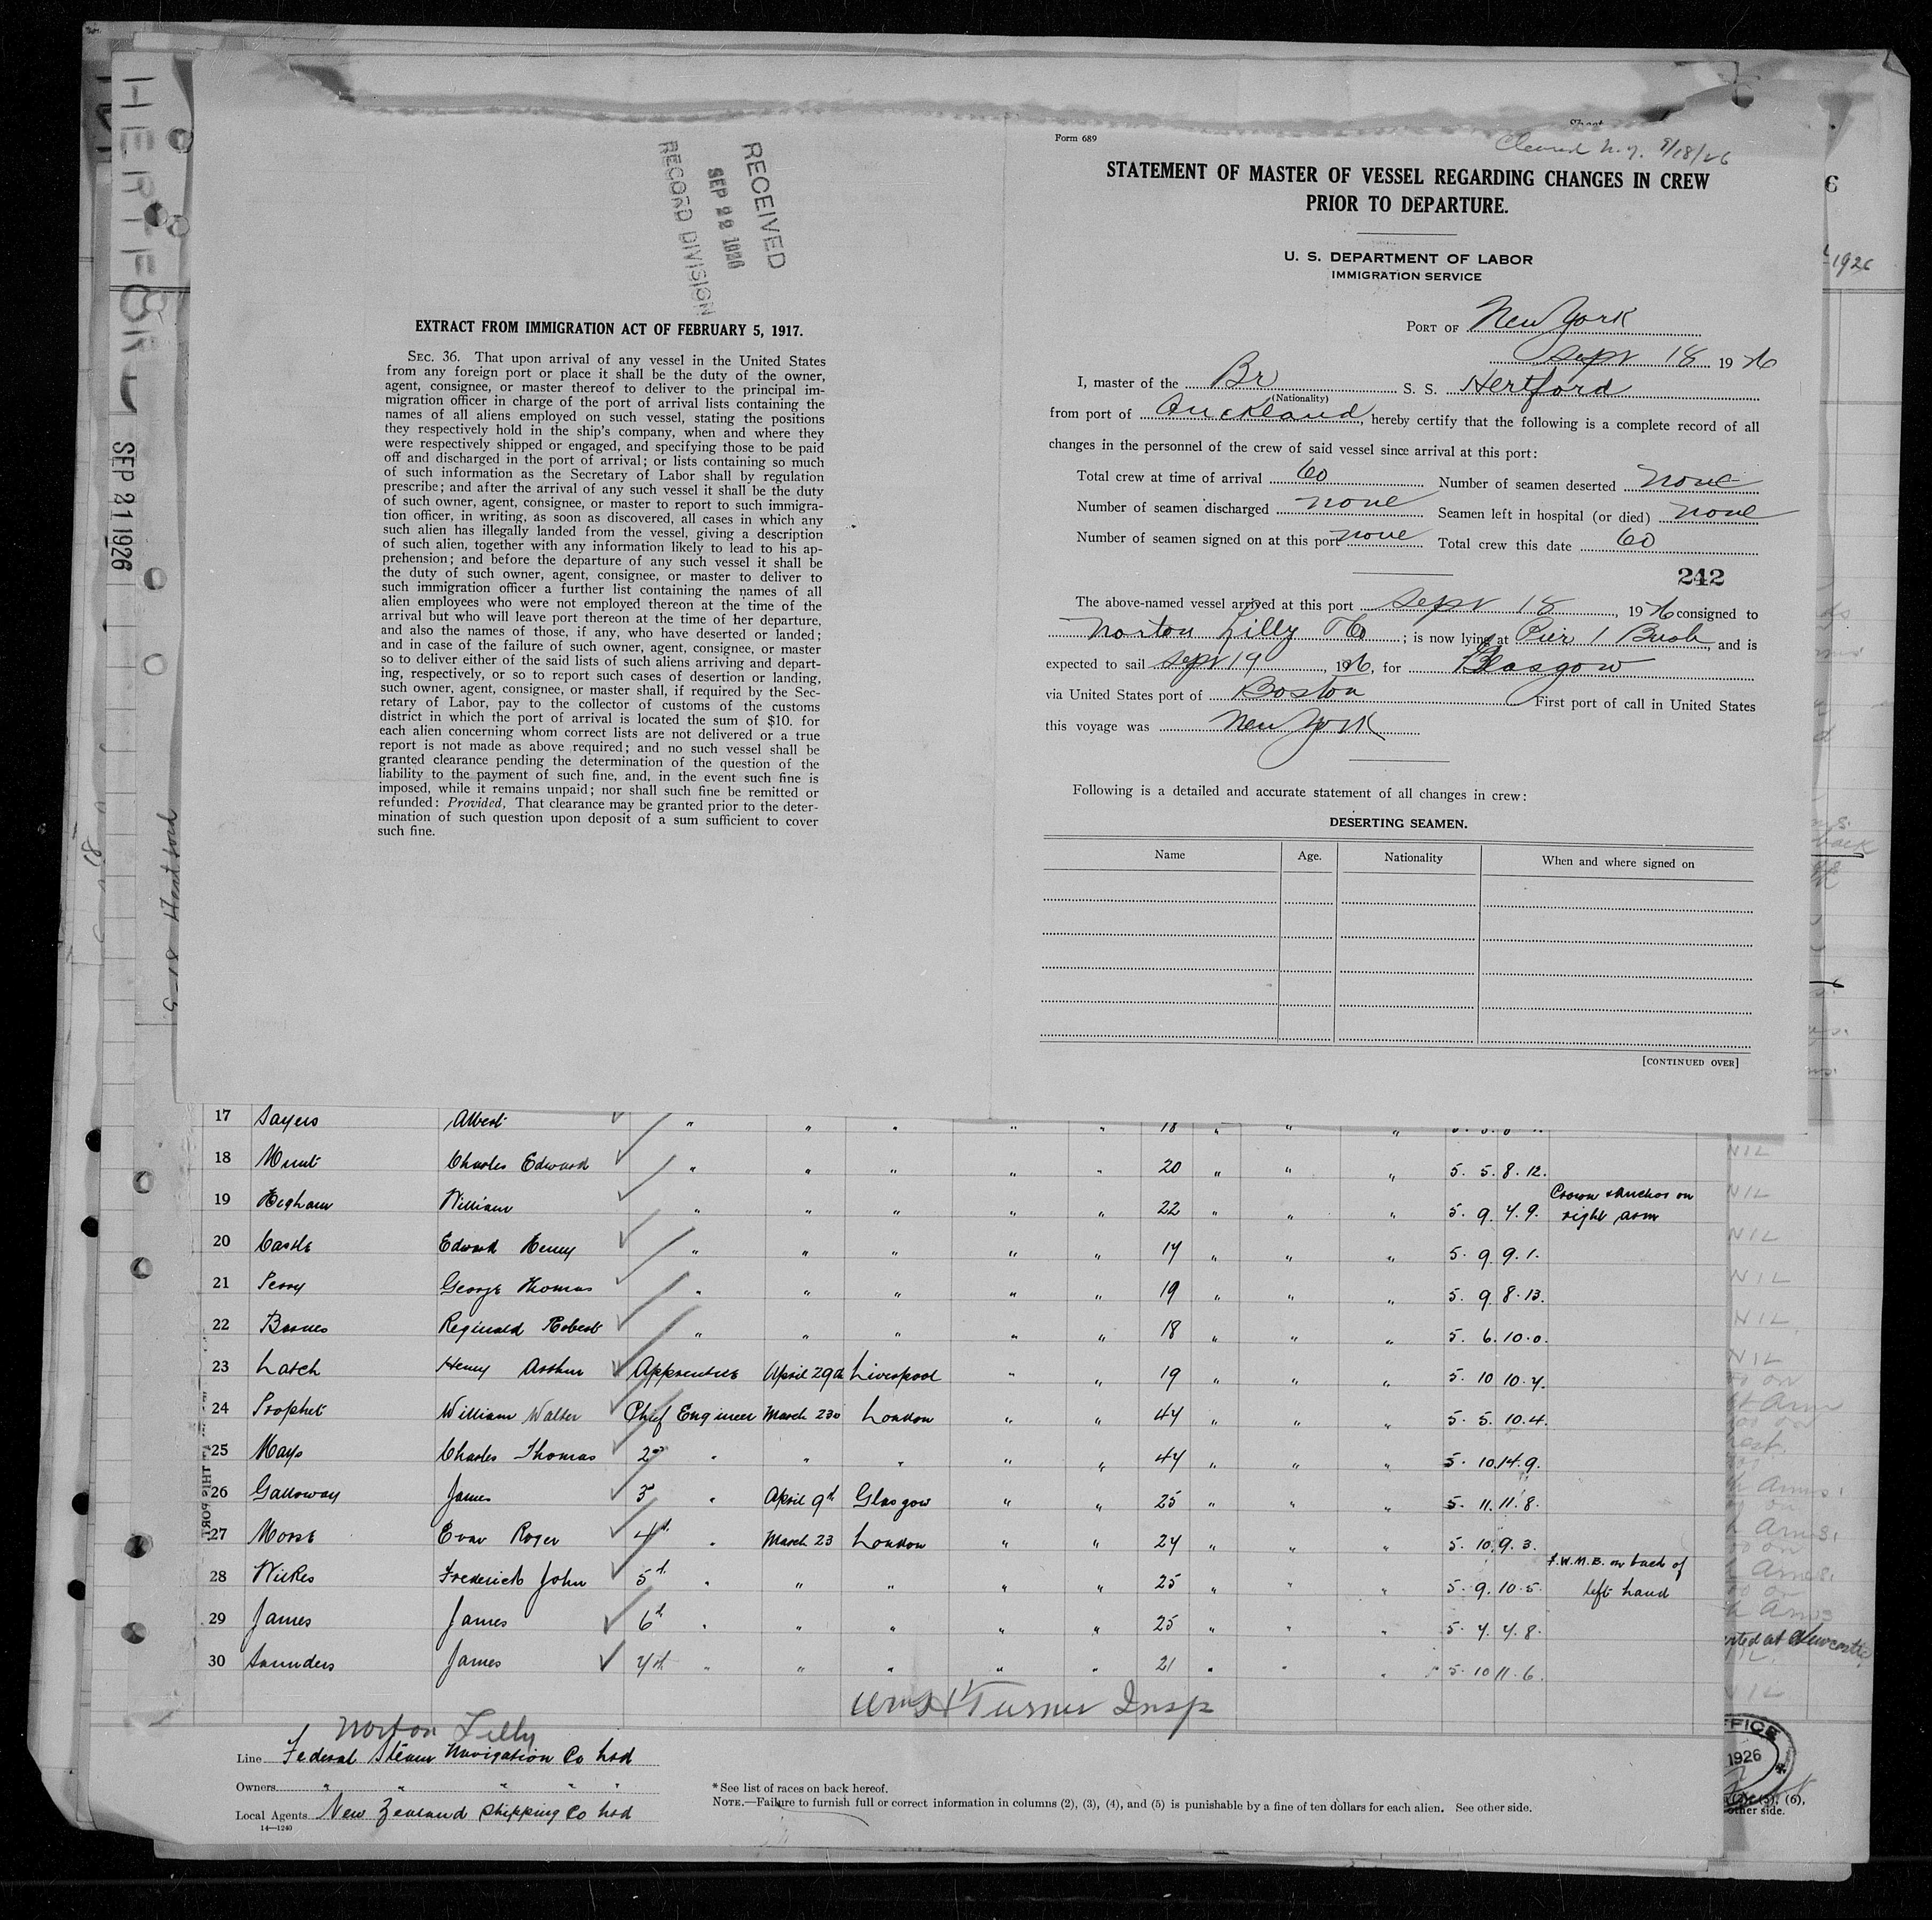 HERTFOR
SEP 21 1926
RECEIVED
SEP 22 1926
RECORD DIVISION
EXTRACT FROM IMMIGRATION ACT OF FEBRUARY 5, 1917.
SEC. 36. That upon arrival of any vessel in the United States
from any foreign port or place it shall be the duty of the owner,
agent, consignee, or master thereof to deliver to the principal im-
migration officer in charge of the port of arrival lists containing the
names of all aliens employed on such vessel, stating the positions
they respectively hold in the ship's company, when and where they
were respectively shipped or engaged, and specifying those to be paid
off and discharged in the port of arrival; or lists containing so much
of such information as the Secretary of Labor shall by regulation
prescribe; and after the arrival of any such vessel it shall be the duty
of such owner, agent, consignee, or master to report to such immigra-
tion officer, in writing, as soon as discovered, all cases in which any
such alien has illegally landed from the vessel, giving a description
of such alien, together with any information likely to lead to his ap-
prehension; and before the departure of any such vessel it shall be
the duty of such owner, agent, consignee, or master to deliver to
such immigration officer a further list containing the names of all
alien employees who were not employed thereon at the time of the
arrival but who will leave port thereon at the time of her departure,
and also the names of those, if any, who have deserted or landed;
and in case of the failure of such owner, agent, consignee, or master
so to deliver either of the said lists of such aliens arriving and depart-
ing, respectively, or so to report such cases of desertion or landing,
such owner, agent, consignee, or master shall, if required by the Sec-
retary of Labor, pay to the collector of customs of the customs
district in which the port of arrival is located the sum of $10. for
each alien concerning whom correct lists are not delivered or a true
report is not made as above required; and no such vessel shall be
granted clearance pending the determination of the question of the
liability to the payment of such fine, and, in the event such fine is
imposed, while it remains unpaid; nor shall such fine be remitted or
refunded: Provided, That clearance may be granted prior to the deter-
mination of such question upon deposit of a sum sufficient to cover
such fine.
Form 689
Cleared N.Y. 9/18/26
STATEMENT OF MASTER OF VESSEL REGARDING CHANGES IN CREW
PRIOR TO DEPARTURE.
U. S. DEPARTMENT OF LABOR
IMMIGRATION SERVICE
PORT OF New York
Sept 18 1926
I, master of the Br S. S. Hertford
(Nationality)
from port of Auckland, hereby certify that the following is a complete record of all
changes in the personnel of the crew of said vessel since arrival at this port:
Total crew at time of arrival 60 Number of seamen deserted none
Number of seamen discharged none Seamen left in hospital (or died) none
Number of seamen signed on at this port none Total crew this date 60
242
The above-named vessel arrived at this port Sept 18, 1926 consigned to
Norton Lilly & Co; is now lying at Pier 1 Bush, and is
expected to sail Sept 19, 1926, for Glasgow
via United States port of Boston First port of call in United States
this voyage was New York
Following is a detailed and accurate statement of all changes in crew:
DESERTING SEAMEN.
Name Age. Nationality When and where signed on
[CONTINUED OVER]
17 Sayers Albert " " " " " 18 " " "
18 Munt Charles Edward " " " " " 20 " " " 5. 5. 8. 12.
19 Higham William " " " " " 22 " " " 5. 9. 7. 9. Crown & Anchor on right arm
20 Castle Edward Henry " " " " " 17 " " " 5. 9. 9. 1.
21 Perry George Thomas " " " " " 19 " " " 5. 9. 8. 13.
22 Barnes Reginald Robert " " " " " 18 " " " 5. 6. 10. 0.
23 Larch Henry Arthur Apprentice April 29th Liverpool " " 19 " " " 5. 10 10. 7.
24 Prophet William Walter Chief Engineer March 23d London " " 47 " " " 5. 5. 10. 4.
25 Mays Charles Thomas 2nd " " " " " 47 " " " 5. 10. 14. 9.
26 Galloway James 3 " April 9th Glasgow " " 25 " " " 5. 11. 11. 8.
27 Morse Evan Roger 4th " March 23 London " " 27 " " " 5. 10. 9. 3.
28 Wilkes Frederick John 5th " " " " " 25 " " " 5. 9. 10. 5. F.W.M.B. on back of left hand
29 James James 6th " " " " " 25 " " " 5. 7. 7. 8.
30 Saunders James 7th " " " " " 21 " " " 5. 10 11. 6.
Wm H Turner Insp
Norton Lilly
Line Federal Steam Navigation Co Ltd
Owners " " " " "
Local Agents New Zealand Shipping Co Ltd
14—1240
*See list of races on back hereof.
NOTE.—Failure to furnish full or correct information in columns (2), (3), (4), and (5) is punishable by a fine of ten dollars for each alien. See other side.
1926
NIL
NIL
NIL
NIL
NIL
NIL
at Newcastle
NIL
FFICE
1926
other side.